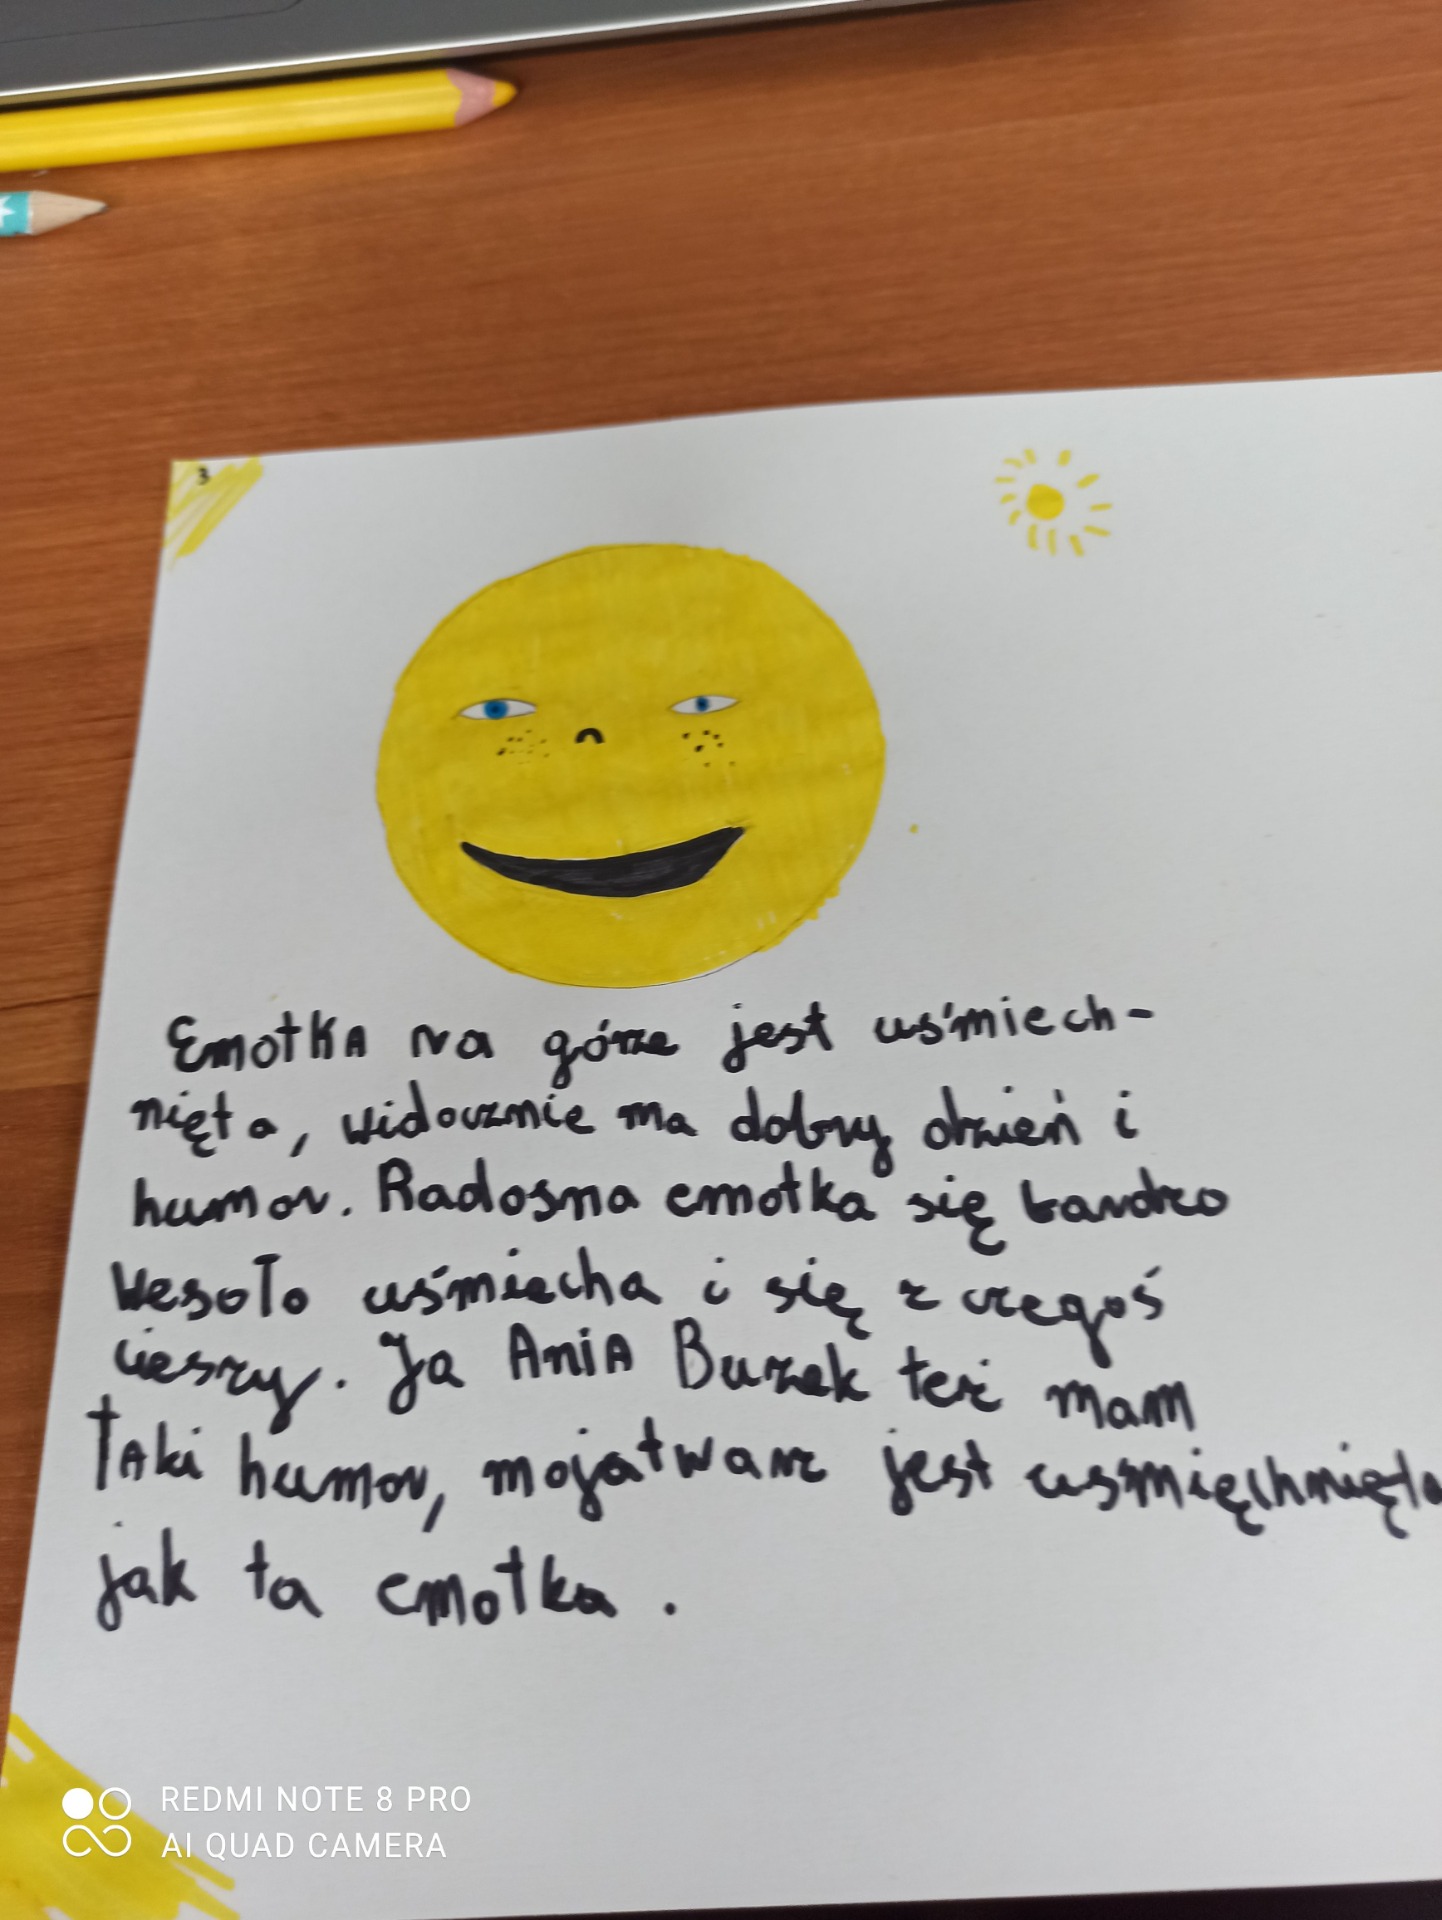 3
Emotka na górze jest uśmiech-
nięta, widocznie ma dobry dzień i
humor. Radosna emotka się bardzo
wesoło uśmiecha i się z czegoś
cieszy. Ja Ania Buzek też mam
Taki humor, moja twarz jest uśmięchnięta
jak ta emotka.
REDMI NOTE 8 PRO
AI QUAD CAMERA